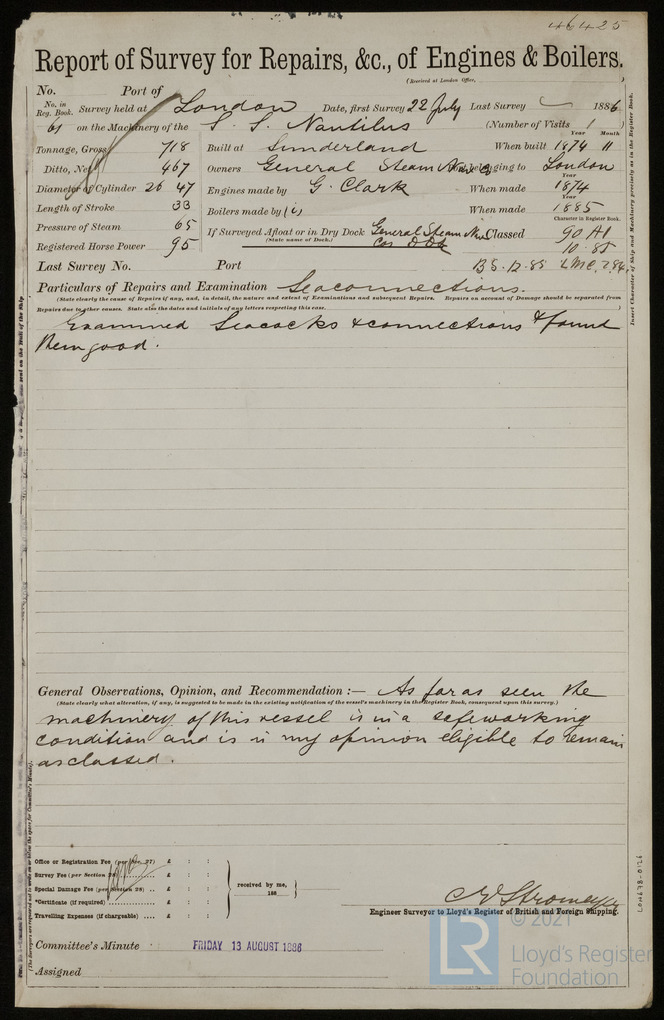 46425
Report of Survey for Repairs, &c., of Engines & Boilers.
(Received at London Office,
No. Port of
No. in Reg. Book. Survey held at London Date, first Survey 22 July Last Survey 1886
61 on the Machinery of the S. S. Nautilus (Number of Visits 1 )
Tonnage, Gross 718 Built at Sunderland When built 1874 Year 11 Month
Ditto, Net 467 Owners General Steam Nav. belonging to London
Diameter of Cylinder 26 47 Engines made by G. Clark When made Year 1874
Length of Stroke 33 Boilers made by (i) When made Year 1885
Pressure of Steam 65 If Surveyed Afloat or in Dry Dock General Steam Nav Classed Character in Register Book. 90 A1
(State name of Dock.) Cos
Registered Horse Power 95 10.85
Last Survey No. Port BS. 12.85 LMC.
Particulars of Repairs and Examination Seaconnections.
(State clearly the cause of Repairs if any, and, in detail, the nature and extent of Examinations and subsequent Repairs. Repairs on account of Damage should be separated from
Repairs due to other causes. State also the dates and initials of any letters respecting this case. )
Examined Seacocks & connections & found
them good.
General Observations, Opinion, and Recommendation :— As far as seen the
(State clearly what alteration, if any, is suggested to be made in the existing notification of the vessel's machinery in the Register Book, consequent upon this survey.)
machinery of this vessel is in a safe working
condition and is in my opinion eligible to remain
as classed.
Office or Registration Fee (per Sec. 27) £ : :
Survey Fee (per Section 28) £ : :
Special Damage Fee (per Section 28) .. £ : :
*Certificate (if required) £ : :
Travelling Expenses (if chargeable) .... £ : :
received by me,
188
C E Stromeyer
Engineer Surveyor to Lloyd's Register of British and Foreign Shipping.
Committee's Minute FRIDAY 13 AUGUST 1886
Assigned
Insert Character of Ship and Machinery precisely as in the Register Book.
LON678-0126
© 2021
LR
Lloyd's Register
Foundation